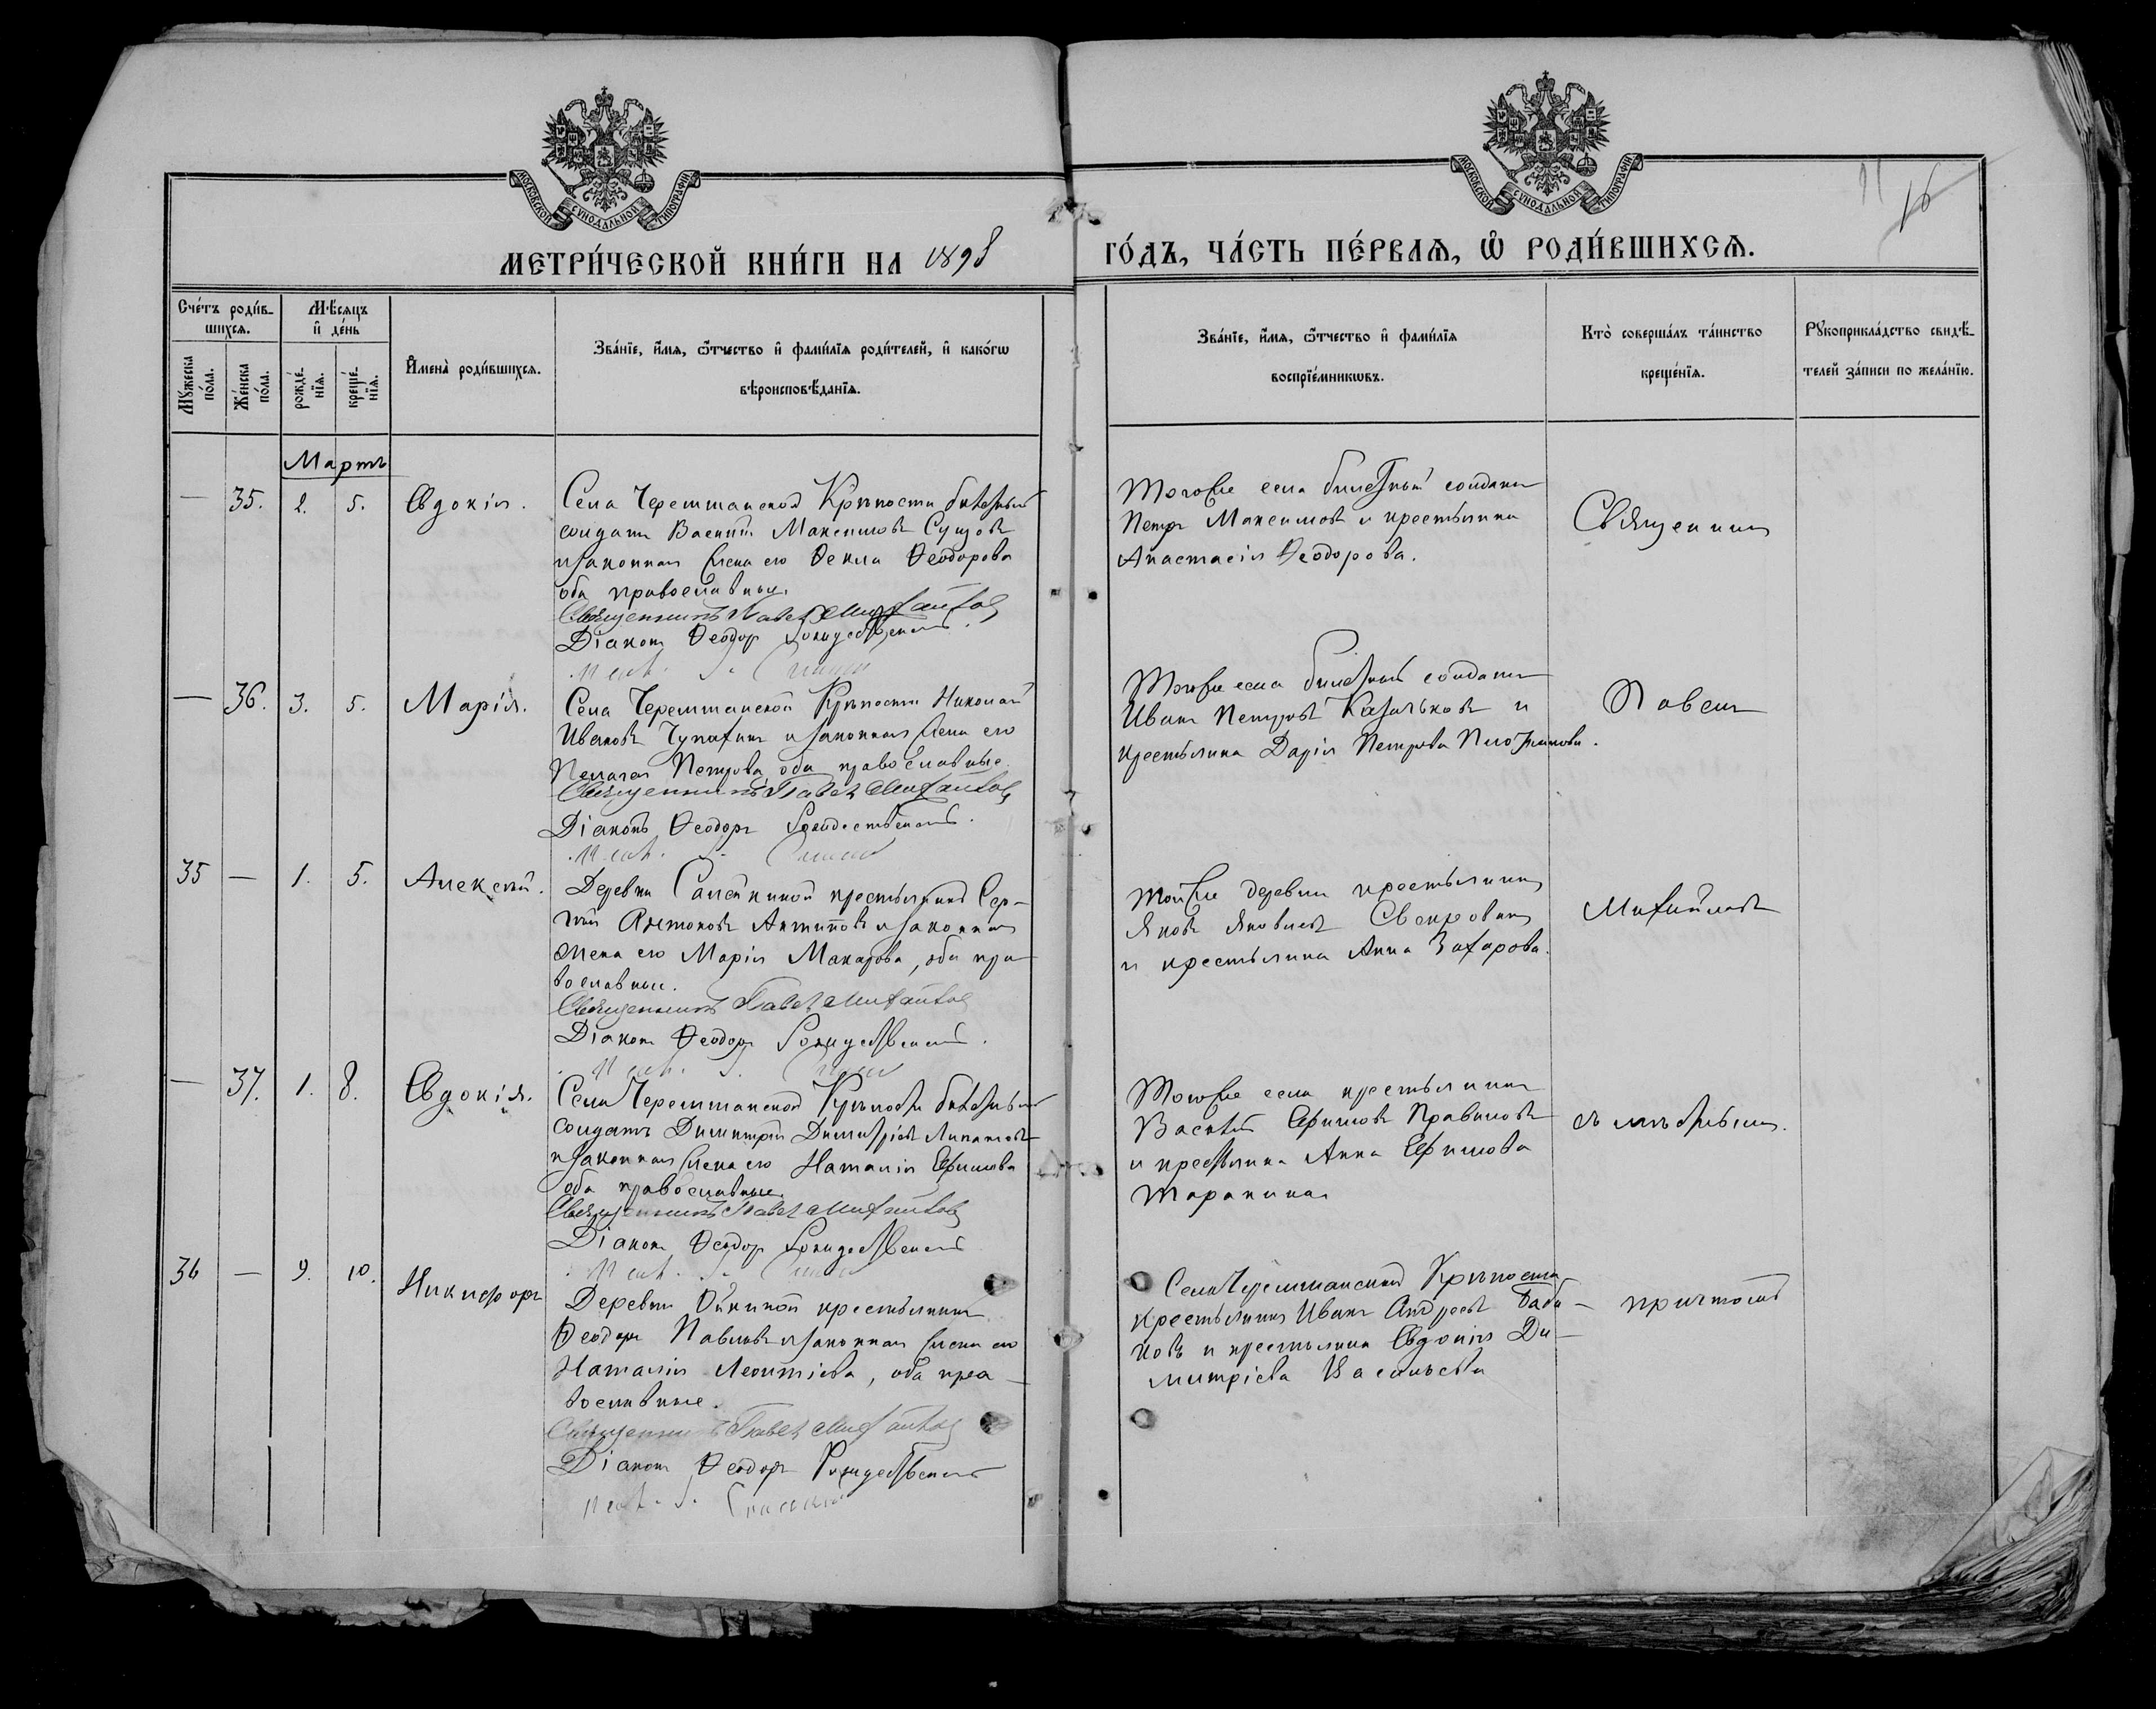 МОСКОВСКОЙ СѴНОДАЛЬНОЙ ТИПОГРАФІИ
МОСКОВСКОЙ СѴНОДАЛЬНОЙ ТИПОГРАФІИ
16
МЕТРИ́ЧЕСКОЙ КНИ́ГИ НА 1898
ГО́ДЪ, ЧА́СТЬ ПЕ́РВАѦ, Ѡ҆ РОДИ́ВШИХСѦ.
Сче́тъ роди́в-
шихсѧ.
Мꙋ́жеска по́ла.
Же́нска по́ла.
Мѣ́сѧцъ
и҆ де́нь
рожде́-
нїѧ.
креще́-
нїѧ.
И҆мена̀ роди́вшихсѧ.
Зва́нїе, и҆́мѧ, ѻ҆́тчество и҆ фами́лїѧ роди́телей, и҆ како́гѡ
вѣроисповѣ́данїѧ.
Зва́нїе, и҆́мѧ, ѻ҆́тчество и҆ фами́лїѧ
воспрїе́мникѡвъ.
Кто̀ соверша́лъ та́инство
креще́нїѧ.
Рꙋкоприкла́дство свидѣ́-
телей за́писи по жела́нїю.
Мартъ
— 35. 2. 5. Евдокія.
Села Черемшанской Крѣпости билетный
солдатъ Василій Максимовъ Сущовъ
и законная жена его Ѳекла Ѳеодорова
оба православные.
Священникъ Павелъ Михайловъ
Діаконъ Ѳеодоръ Рождественскій.
Того же села билетный солдатъ
Петръ Максимовъ и крестьянка
Анастасія Ѳеодорова.
Священникъ
— 36. 3. 5. Марія.
Села Черемшанской Крѣпости Николай
Ивановъ Чупахинъ и законная жена его
Пелагея Петрова, оба православные.
Священникъ Павелъ Михайловъ
Діаконъ Ѳеодоръ Рождественскій.
Того же села билетный солдатъ
Иванъ Петровъ Казачковъ и
крестьянка Дарія Петрова
Павелъ
35 — 1. 5. Алексѣй.
Деревни крестьянинъ Сер-
гѣй Антоновъ Антиповъ и законная
жена его Марія Макарова, оба пра-
вославные.
Священникъ Павелъ Михайловъ
Діаконъ Ѳеодоръ Рождественскій.
Той же деревни крестьянинъ
Яковъ Яковлевъ
и крестьянка Анна Захарова.
Михайловъ
— 37. 1. 8. Евдокія.
Села Черемшанской Крѣпости билетный
солдатъ Димитрій Димитріевъ Липатовъ
и законная жена его Наталія Ефимова
оба православные.
Священникъ Павелъ Михайловъ
Діаконъ Ѳеодоръ Рождественскій
Того же села крестьянинъ
Василій Ефимовъ
и крестьянка Анна Ефимова
Таракина
съ мѣстнымъ
36 — 9. 10. Никифоръ
Деревни крестьянинъ
Ѳеодоръ Павловъ и законная жена его
Наталія Леонтіева, оба пра-
вославные.
Священникъ Павелъ Михайловъ
Діаконъ Ѳеодоръ Рождественскій
Спасскій
Села Черемшанской Крѣпости
крестьянинъ Иванъ Андреевъ Баби-
новъ и крестьянка Евдокія Ди-
митріева Васильева
причтомъ